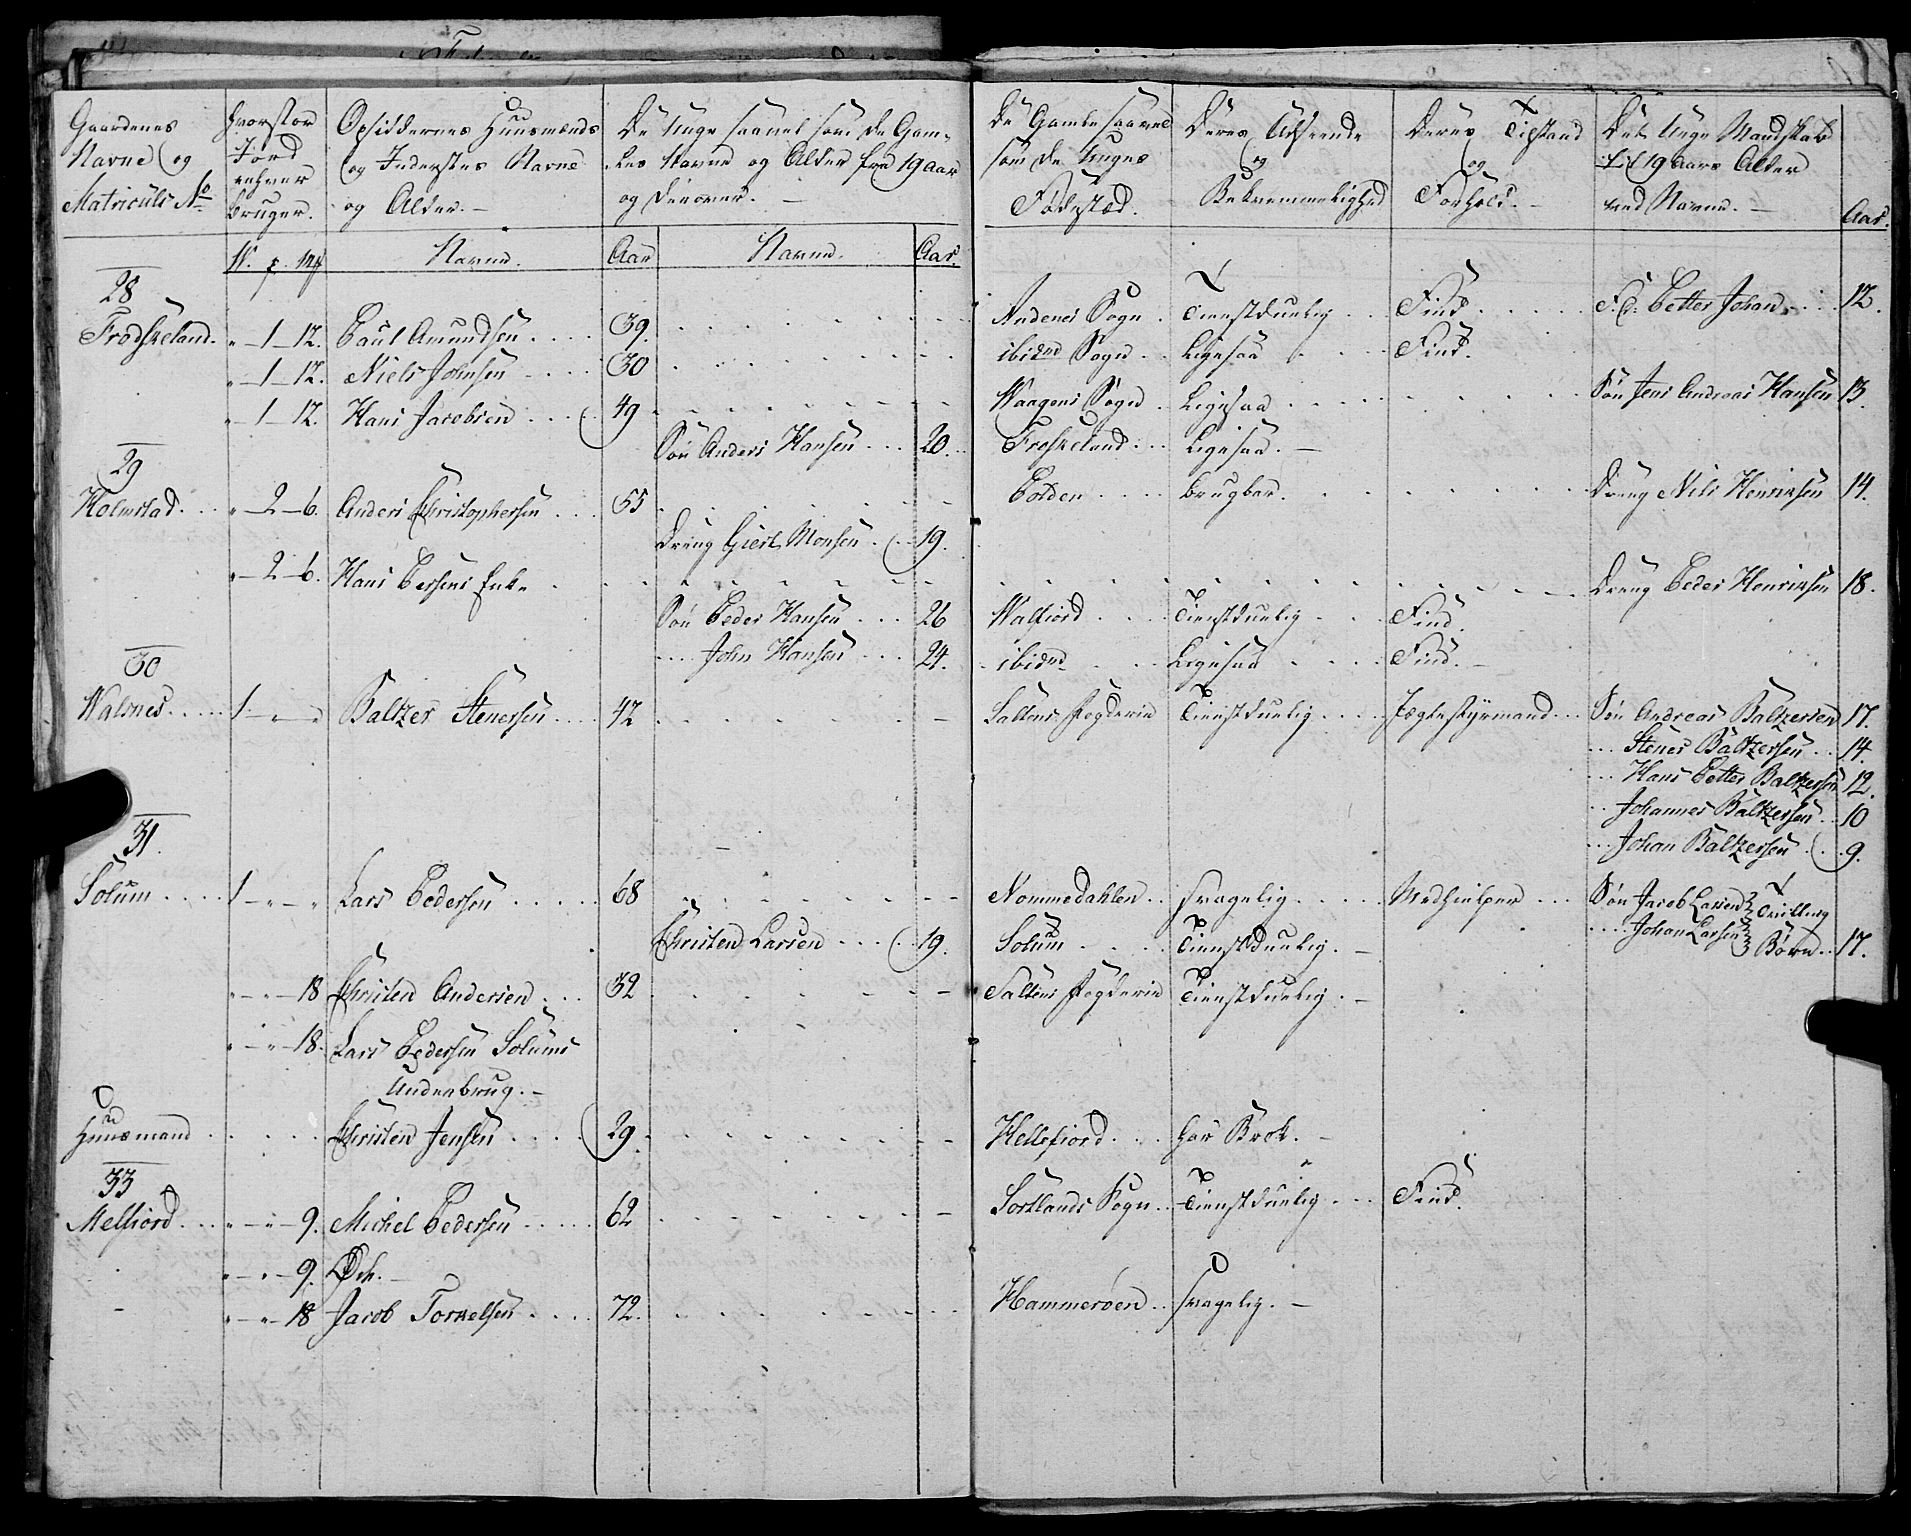 Gaardenes
Navne og
Matriculs No
hvorstor
Jord
enhver
bruger.
Opsiddernes Huusmænds
og Inderstes Navne
og Alder. —
De Unge saavel som de Gam-
les Navne og Alder fra 19 aar
og derover. —
De Gamle saavel
som de Unges
Fødested.
Deres Udseende
og
Bekvemmelighed
Deres Tilstand
og
Forhold. —
Det Unge Mandskab
til 19 aars Alder
ved Navne. —
Aar.
W. p. mk
Navne.
Aar
Navne.
Aar.
28
Frodskeland. „ — 1 — 12. Paul Amundsen . . . . 39. Andenes Sogn . Tienstduelig . . . Find . . . . . F. S. Petter Johan . . . 12.
„ — 1 — 12. Niels Johnsen . . . . 30 ibidm Sogn . . Ligesaa . . . Find.
„ — 1 — 12. Hans Jacobsen . . . . 49 Waagens Sogn . Ligesaa . . . . . Søn Jens Andreas Hansen 13.
Søn Anders Hansen . . . 20. Froskeland . . . Ligesaa. —
29
Holmstad. . . „ — 2 — 6. Anders Christophersen . . . 55 Bolden . . . . brugbar. . . . . Dreng Nils Henriksen 14.
Dreng Giert Monsen . . . 19.
„ — 2 — 6. Hans Persens Enke . Dreng Peder Henriksen 18.
Søn Peder Hansen . . . 26 Walfiord . . . . Tienstduelig . . . Find.
. . . . John Hansen . . . 24. ibidm . . . Ligesaa . . . . Find. —
30
Walsnes . . . . . 1 — „ — „ Baltzer Stenersen . . . . 42 Saltens Fogderie Tienstduelig . . . . Jægtestyrmand . . . Søn Andreas Baltzersen 17.
. . . Stener Baltzersen . . 14.
. . . Hans Petter Baltzersen 12.
. . Johannes Baltzersen . . 10
. . . Johan Baltzersen . . . 9.
31
Solum . . . . . 1 — „ — „ Lars Pedersen . . . . . 68 Nommedahlen . . svagelig . . . . . Medhielper . . . Søn Jacob Larsen Tvilling
. . . . Johan Larsen Børn . . 17.
Christen Larsen . . . . 19. Solum . . . . Tienstduelig. —
„ — „ — 18 Christen Andersen . . . 32 Saltens Fogderie Tienstduelig. —
„ — „ — 18. Lars Pedersen Solums
Underbrug. —
Huusmand . . . . . Christen Jensen . . . . 29. Hellefiord . . . har Brok. —
33
Melfiord . . . „ — „ — 9. Michel Pedersen . . . . . 62 Sortlands Sogn . . Tienstduelig . . . Find.
„ — „ — 9. Øde. —
„ — „ — 18 Jacob Torkelsen . . . . 72. Hammerøen . . svagelig. —